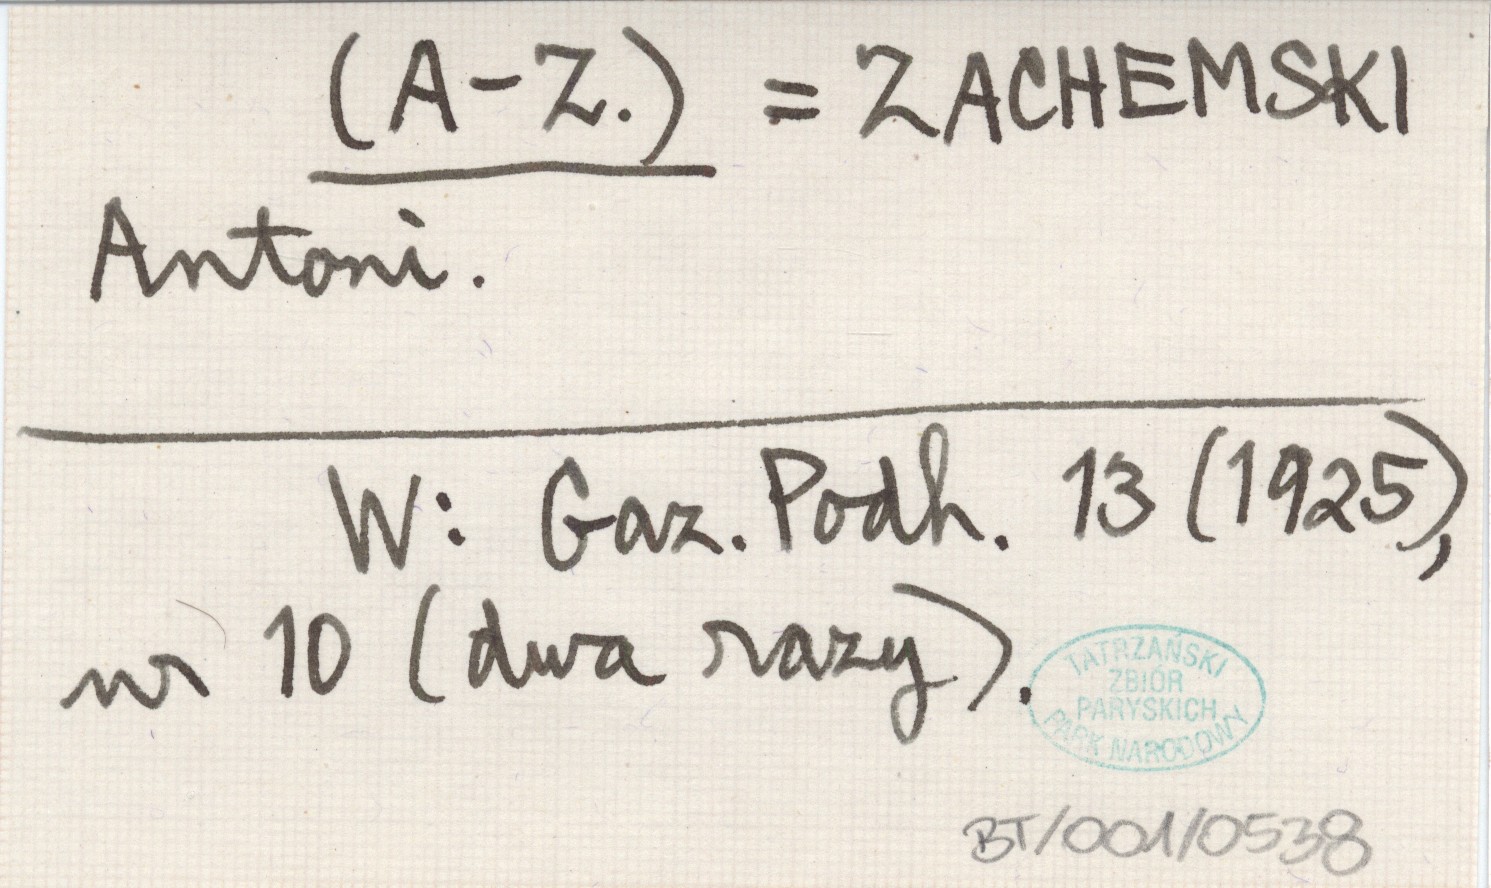 (A-Z.) = ZACHEMSKI
Antoni.
W: Gaz. Podh. 13 (1925),
nr 10 (dwa razy).
TATRZAŃSKI
ZBIÓR
PARYSKICH
PARK NARODOWY
BT/001/0538